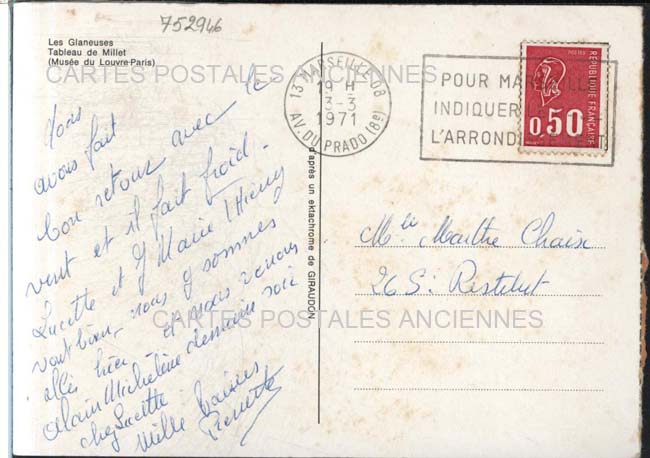 752946
Les Glaneuses
Tableau de Millet
(Musée du Louvre-Paris)
CARTES POSTALES ANCIENNES
13 MARSEILLE 08
19 H
3-3
1971
AV. DU PRADO (8e)
POUR MARSEILLE
INDIQUER
L'ARROND
POSTES
REPUBLIQUE FRANÇAISE
0,50
Nous
avons fait
bon retour avec le
vent et il fait froid.
Lucette et J Marie Thierry
vont bien, nous y sommes
allés hier et nous venons
Alain Michelène demain soir
chez Lucette
Mille baisers
Pierrette
d'après un ektachrome de GIRAUDON
Mlle Marthe Chaix
26 S: Restitut
CARTES POSTALES ANCIENNES